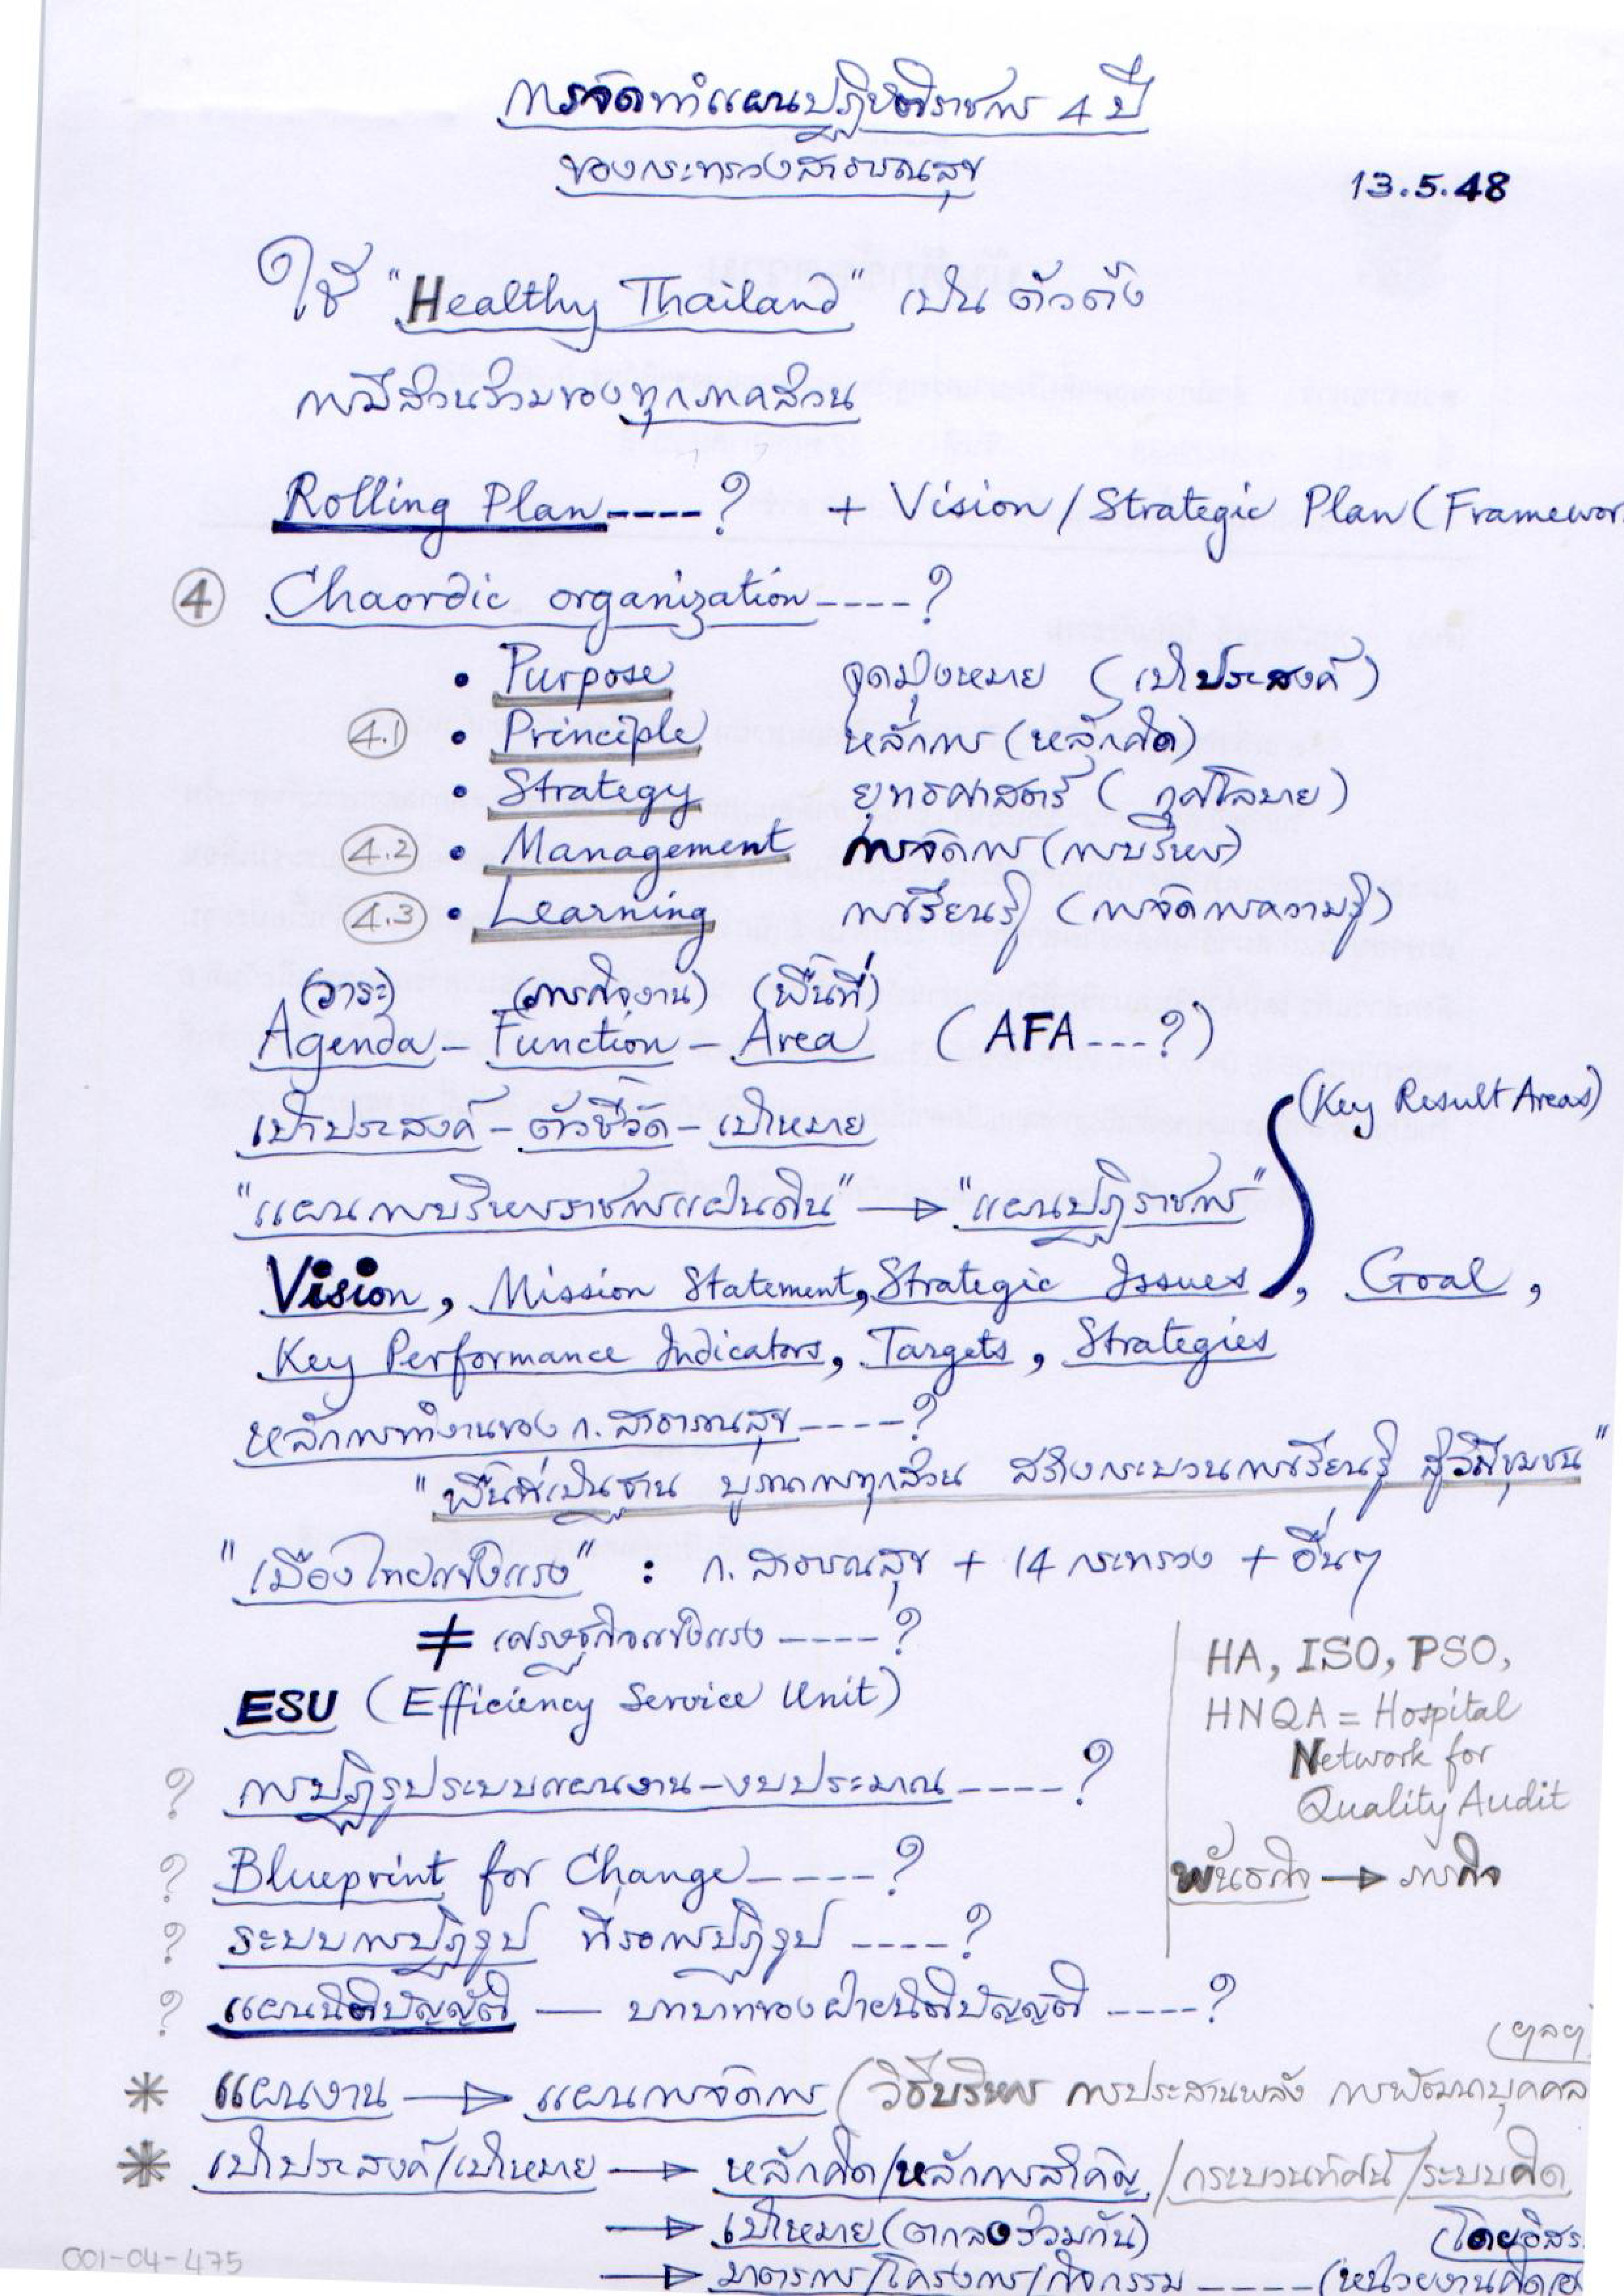 การจัดทำแผนปฏิบัติราชการ 4 ปี
ของกระทรวงสาธารณสุข
13.5.48
ใช้ "Healthy Thailand" เป็น ตัวตั้ง
การมีส่วนร่วมของทุกภาคส่วน
Rolling Plan----? + Vision/Strategic Plan (Framewor
④ Chaordic organization----?
• Purpose จุดมุ่งหมาย (เป้าประสงค์)
4.1 • Principle หลักการ (หลักคิด)
• Strategy ยุทธศาสตร์ (กุศโลบาย)
4.2 • Management การจัดการ (การบริหาร)
4.3 • Learning การเรียนรู้ (การจัดการความรู้)
(วาระ) (ภารกิจงาน) (พื้นที่)
Agenda - Function - Area (AFA ---?)
(Key Result Areas)
เป้าประสงค์ - ตัวชี้วัด - เป้าหมาย
"แผนการบริหารราชการแผ่นดิน" → "แผนปฏิราชการ"
Vision, Mission Statement, Strategic Issues, Goal,
Key Performance Indicators, Targets, Strategies
หลักการทำงานของ ก. สาธารณสุข ----?
"พื้นที่เป็นฐาน บูรณาการทุกส่วน สร้างกระบวนการเรียนรู้ สู่วิถีชุมชน"
"เมืองไทยแข็งแรง" : ก. สาธารณสุข + 14 กระทรวง + อื่นๆ
≠ เศรษฐกิจแข็งแรง ----?
ESU (Efficiency Service Unit)
HA, ISO, PSO,
HNQA = Hospital
Network for
Quality Audit
พันธกิจ → ภารกิจ
? การปฏิรูประบบแผนงาน-งบประมาณ ----?
? Blueprint for Change ----?
? ระบบการปฏิรูป ที่รอการปฏิรูป ----?
? แผนนิติบัญญัติ — บทบาทของฝ่ายนิติบัญญัติ ----?
(ฯลฯ)
* แผนงาน → แผนการจัดการ (วิธีบริหาร การประสานพลัง การพัฒนาบุคคล
* เป้าประสงค์/เป้าหมาย → หลักคิด/หลักการสำคัญ/กระบวนทัศน์/ระบบคิด
→ เป้าหมาย (ตกลงร่วมกัน) (โดยอิสร
→ มาตรการ/โครงการ/กิจกรรม ---- (หน่วยงานคิด
001-04-475